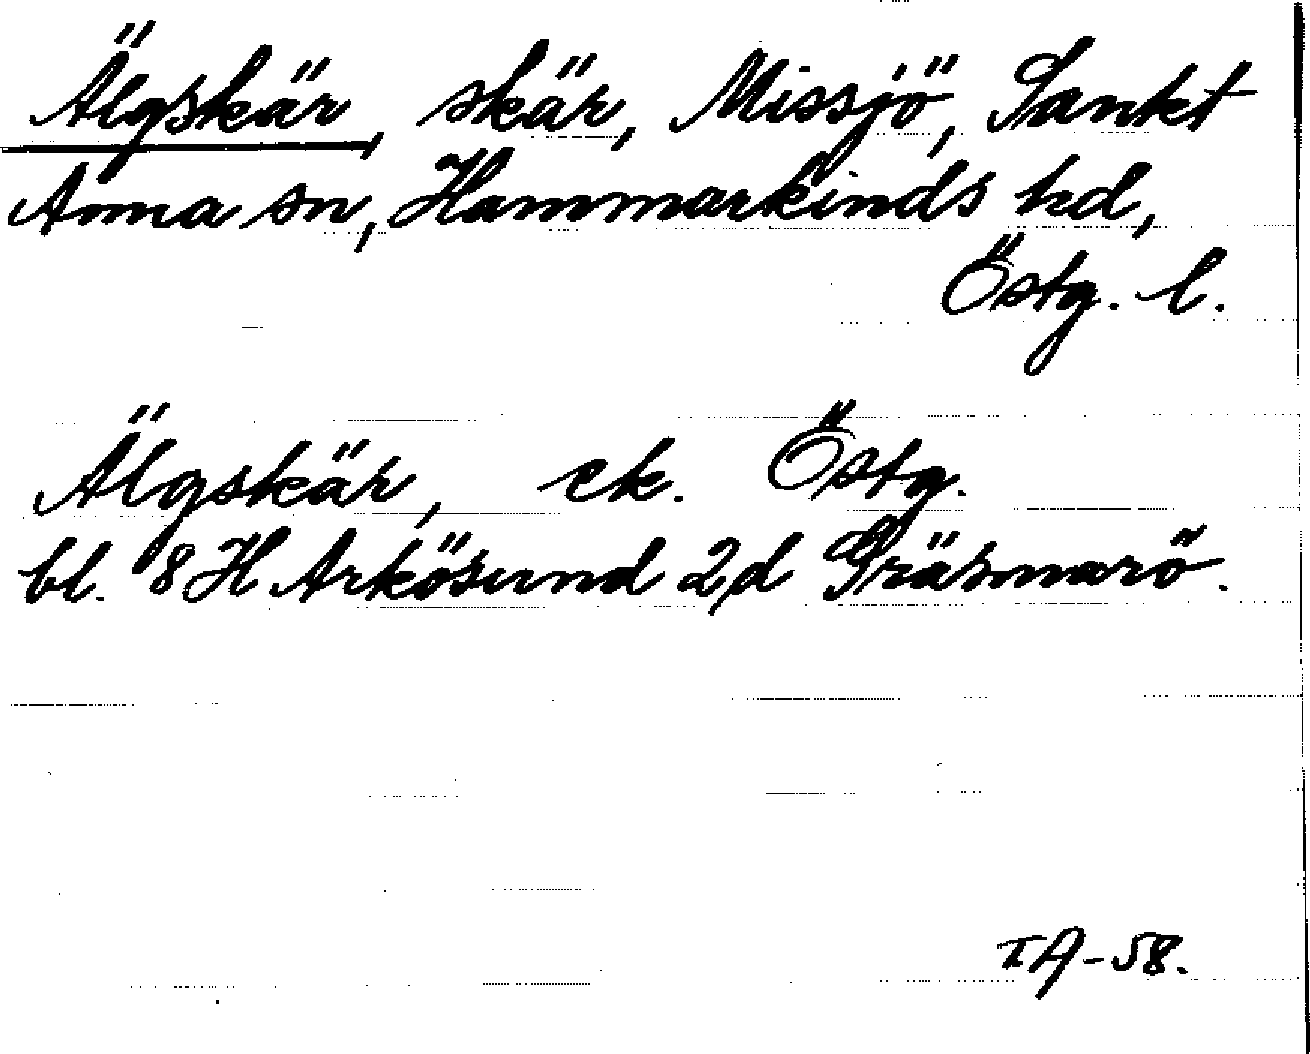 Älgskär, skär, Missjö, Sankt
Anna sn, Hammarkinds hd,
Östg. l.
Älgskär, ek. Östg.
bl. 8H Arkösund 2d Gräsmarö.
IA-58.